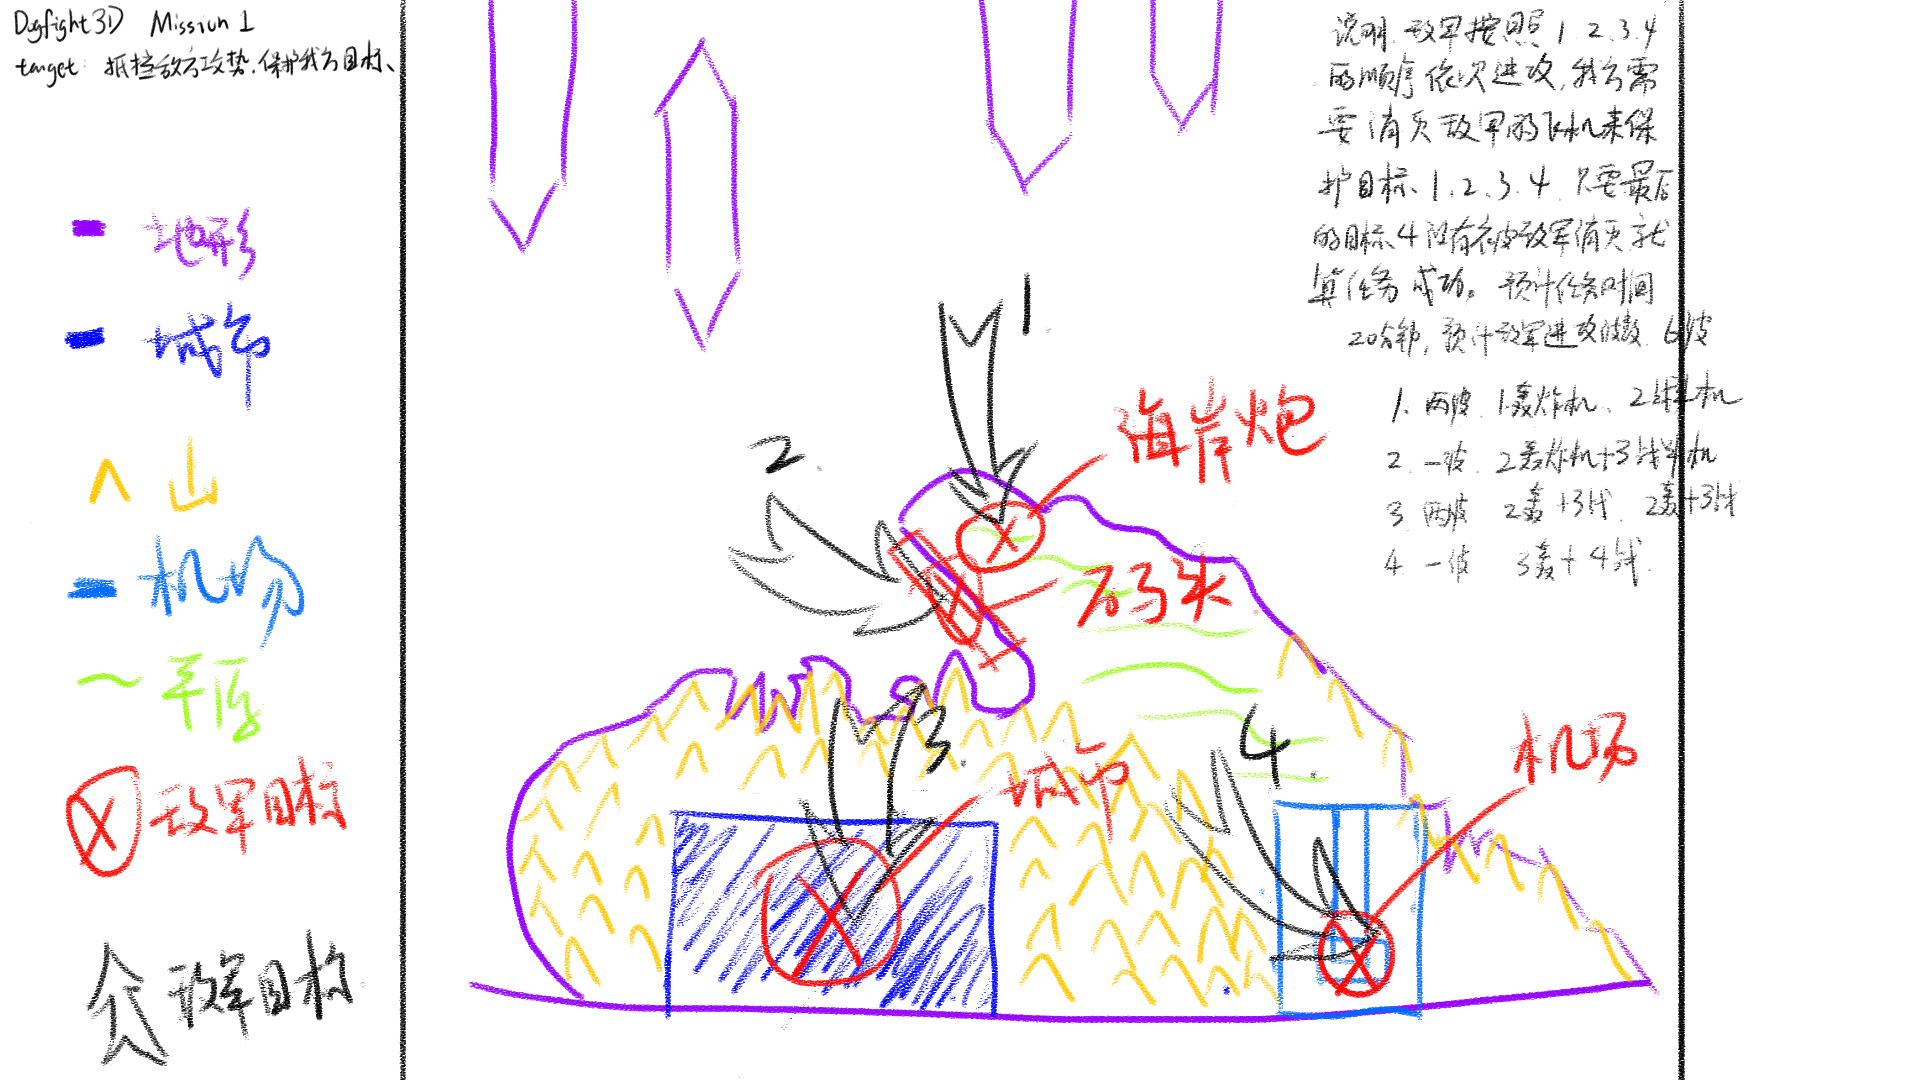 Dogfight 3D Mission 1
target: 抵挡敌方攻势.保护我方目标、
地形
城市
山
机场
平原
敌军目标
敌军目标
1
2.
3.
4.
海岸炮
码头
城市
机场
说明.敌军按照 1.2.3.4
的顺序依次进攻,我方需
要消灭敌军的飞机来保
护目标、1.2.3.4.只要最后
的目标、4没有被敌军消灭就
算任务成功。预计任务时间
20分钟,预计敌军进攻波数.6波
1. 两波. 1轰炸机、2战斗机
2. 一波. 2轰炸机+3战斗机
3. 两波 2轰+3战. 2轰+3战
4. 一波 3轰+4战.